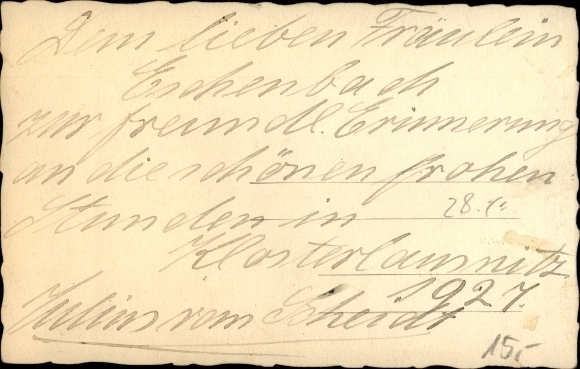 Dem lieben Fräulein
Eschenbach
zur freundl. Erinnerung
an die schönen frohen
Stunden in
28.
Klosterlausnitz
1927.
Julius vom Scheidt
15,-